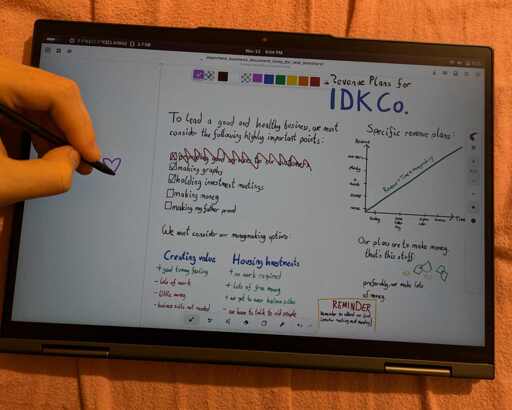 Nov 23 9:04 PM
Revenue Plans for
IDK Co.
To lead a good and healthy business, we must
consider the following highly important points:
making graphs
holding investment meetings
making money
making my father proud
Specific revenue plans:
Revenue
Time
We must consider our moneymaking options:
Creating value
+ good funny feeling
- lots of work
- little money
- business suits not needed
Housing Investments
+ no work required
+ lots of free money
+ we get to wear business suits
- we have to talk to old people
Our plans are to make money.
that's this stuff:
preferably, we make lots
of money.
REMINDER
Remember to attend our first